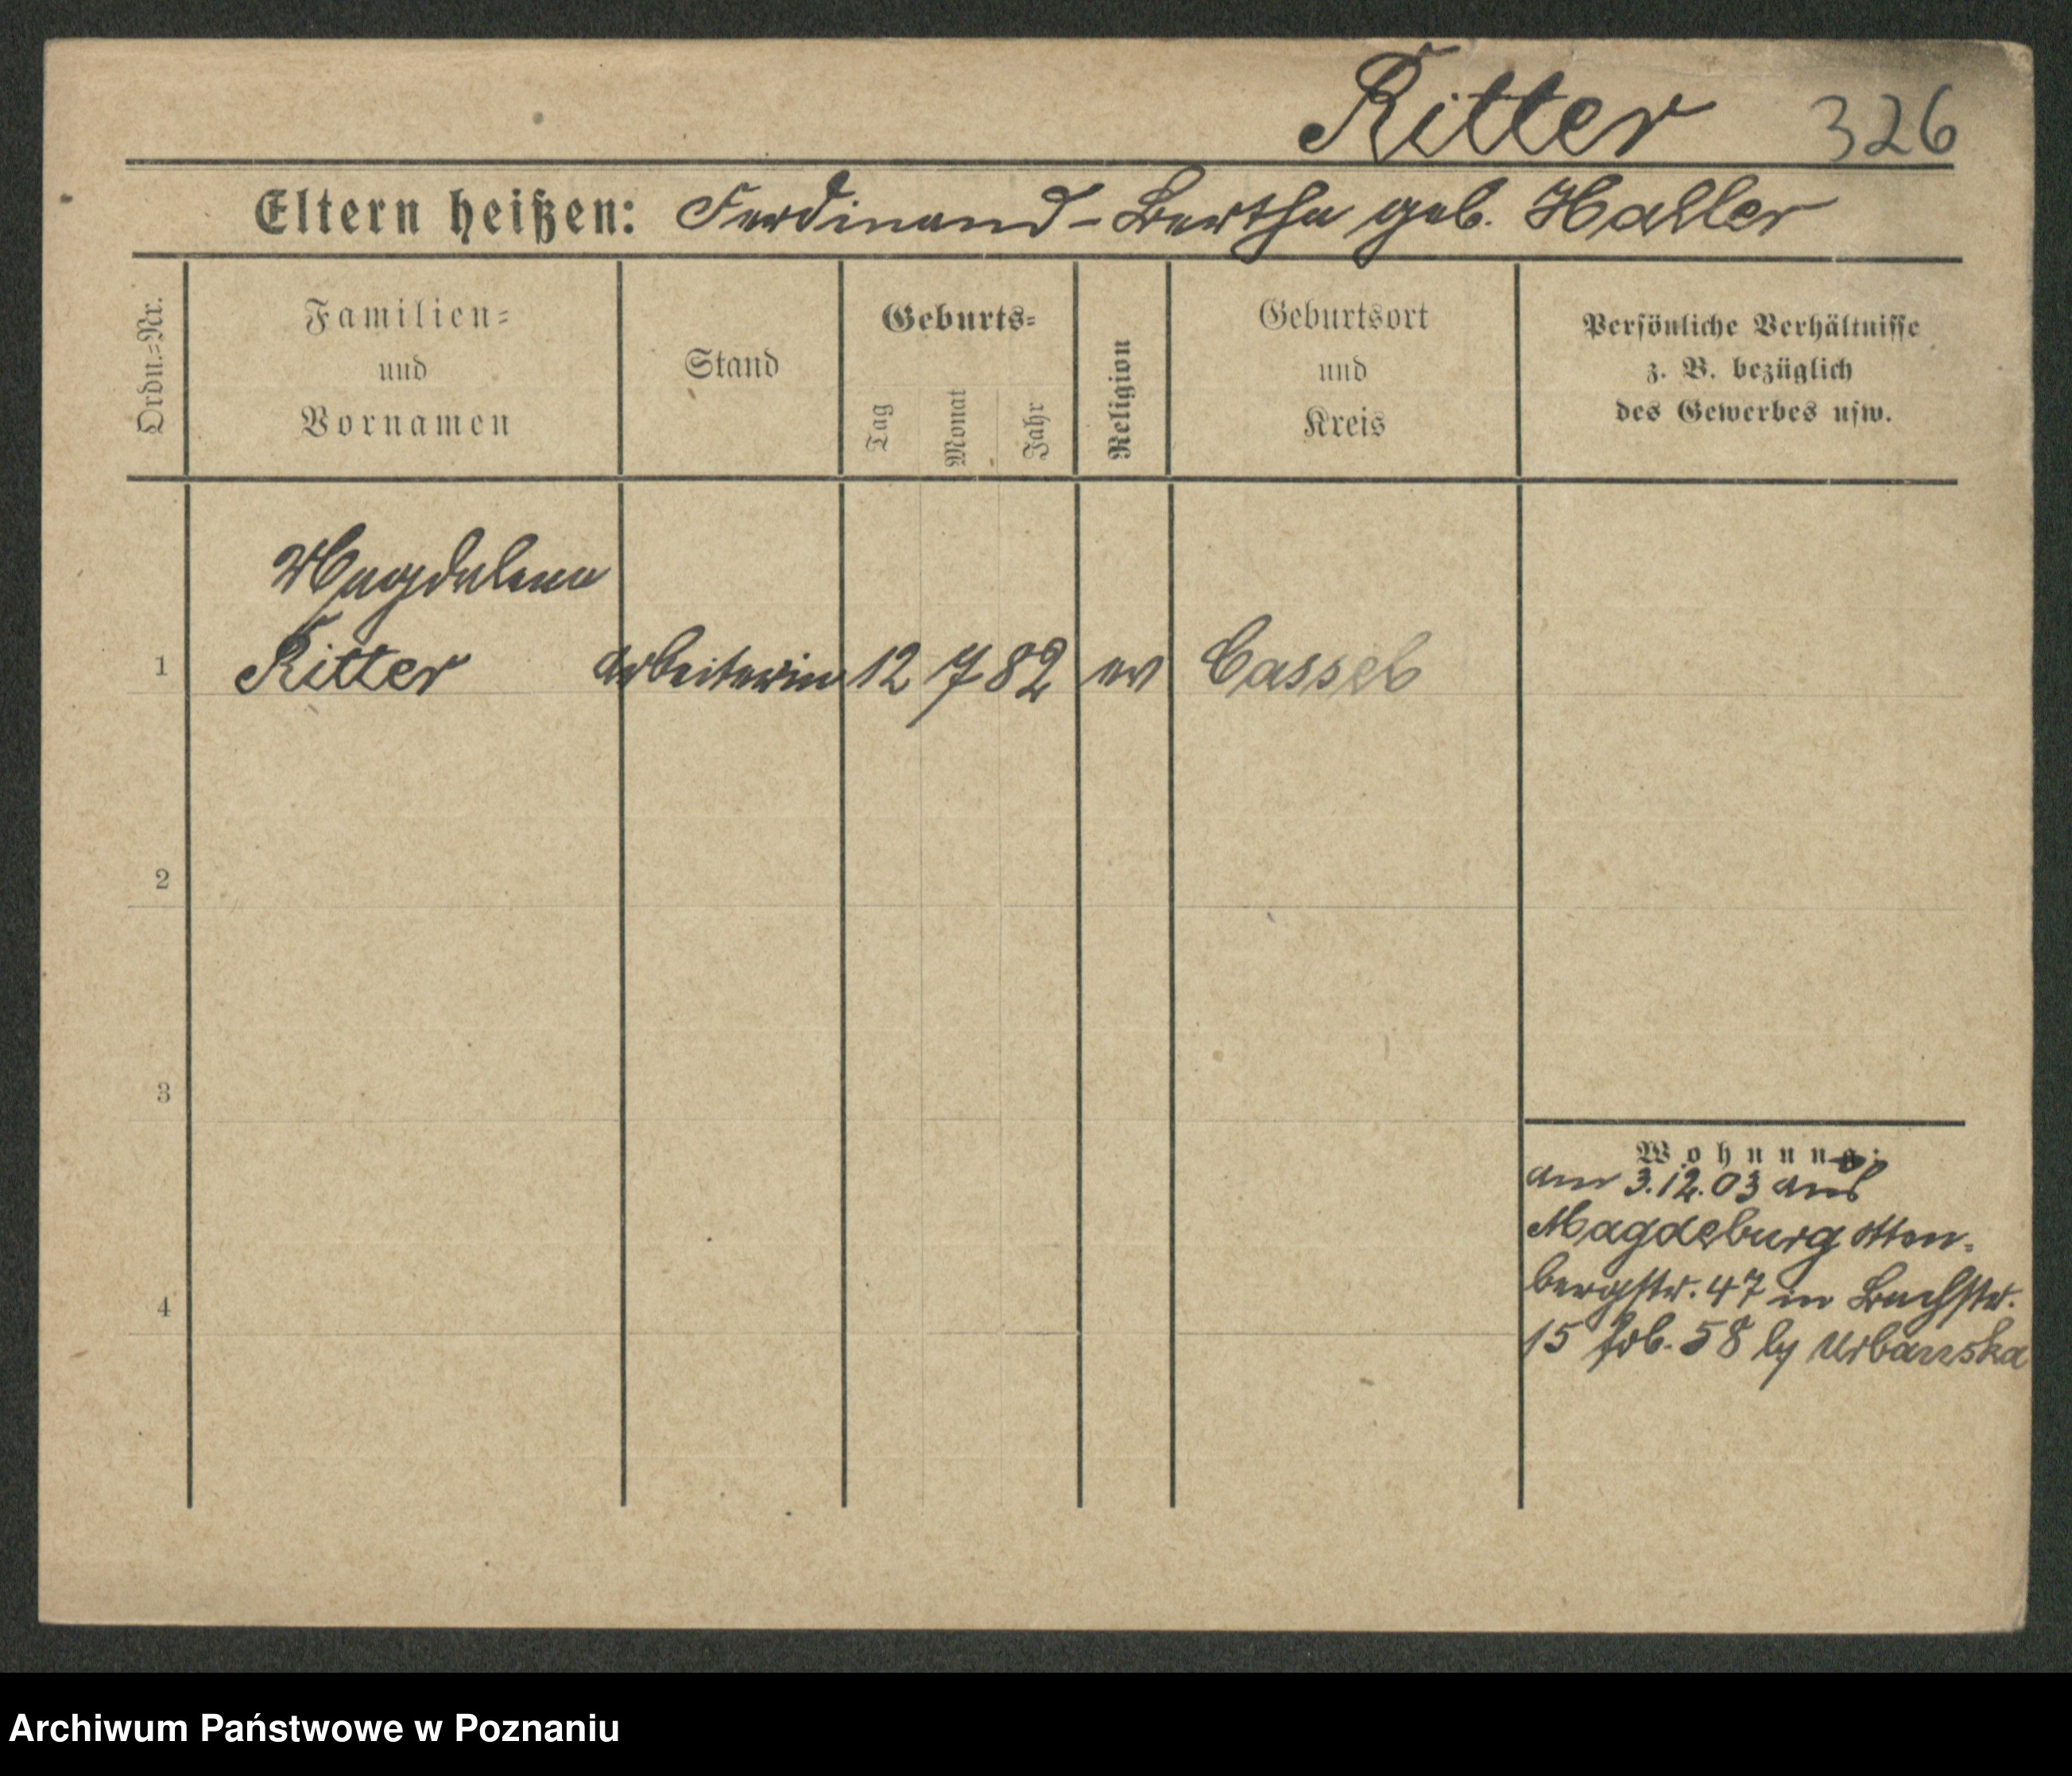 Ritter 326
Eltern heißen: Ferdinand - Bertha geb. Haller
Ordn.=Nr.
Familien=
und
Vornamen
Stand
Geburts=
Tag
Monat
Jahr
Religion
Geburtsort
und
Kreis
Persönliche Verhältnisse
z. B. bezüglich
des Gewerbes usw.
Magdalena
1 Ritter Arbeiterin 12 7 82 ev Cassel
2
3
Wohnung:
am 3.12.03 aus
Magdeburg
bergstr. 47 in Bachstr.
4
15 58 by Urbanska
Archiwum Państwowe w Poznaniu